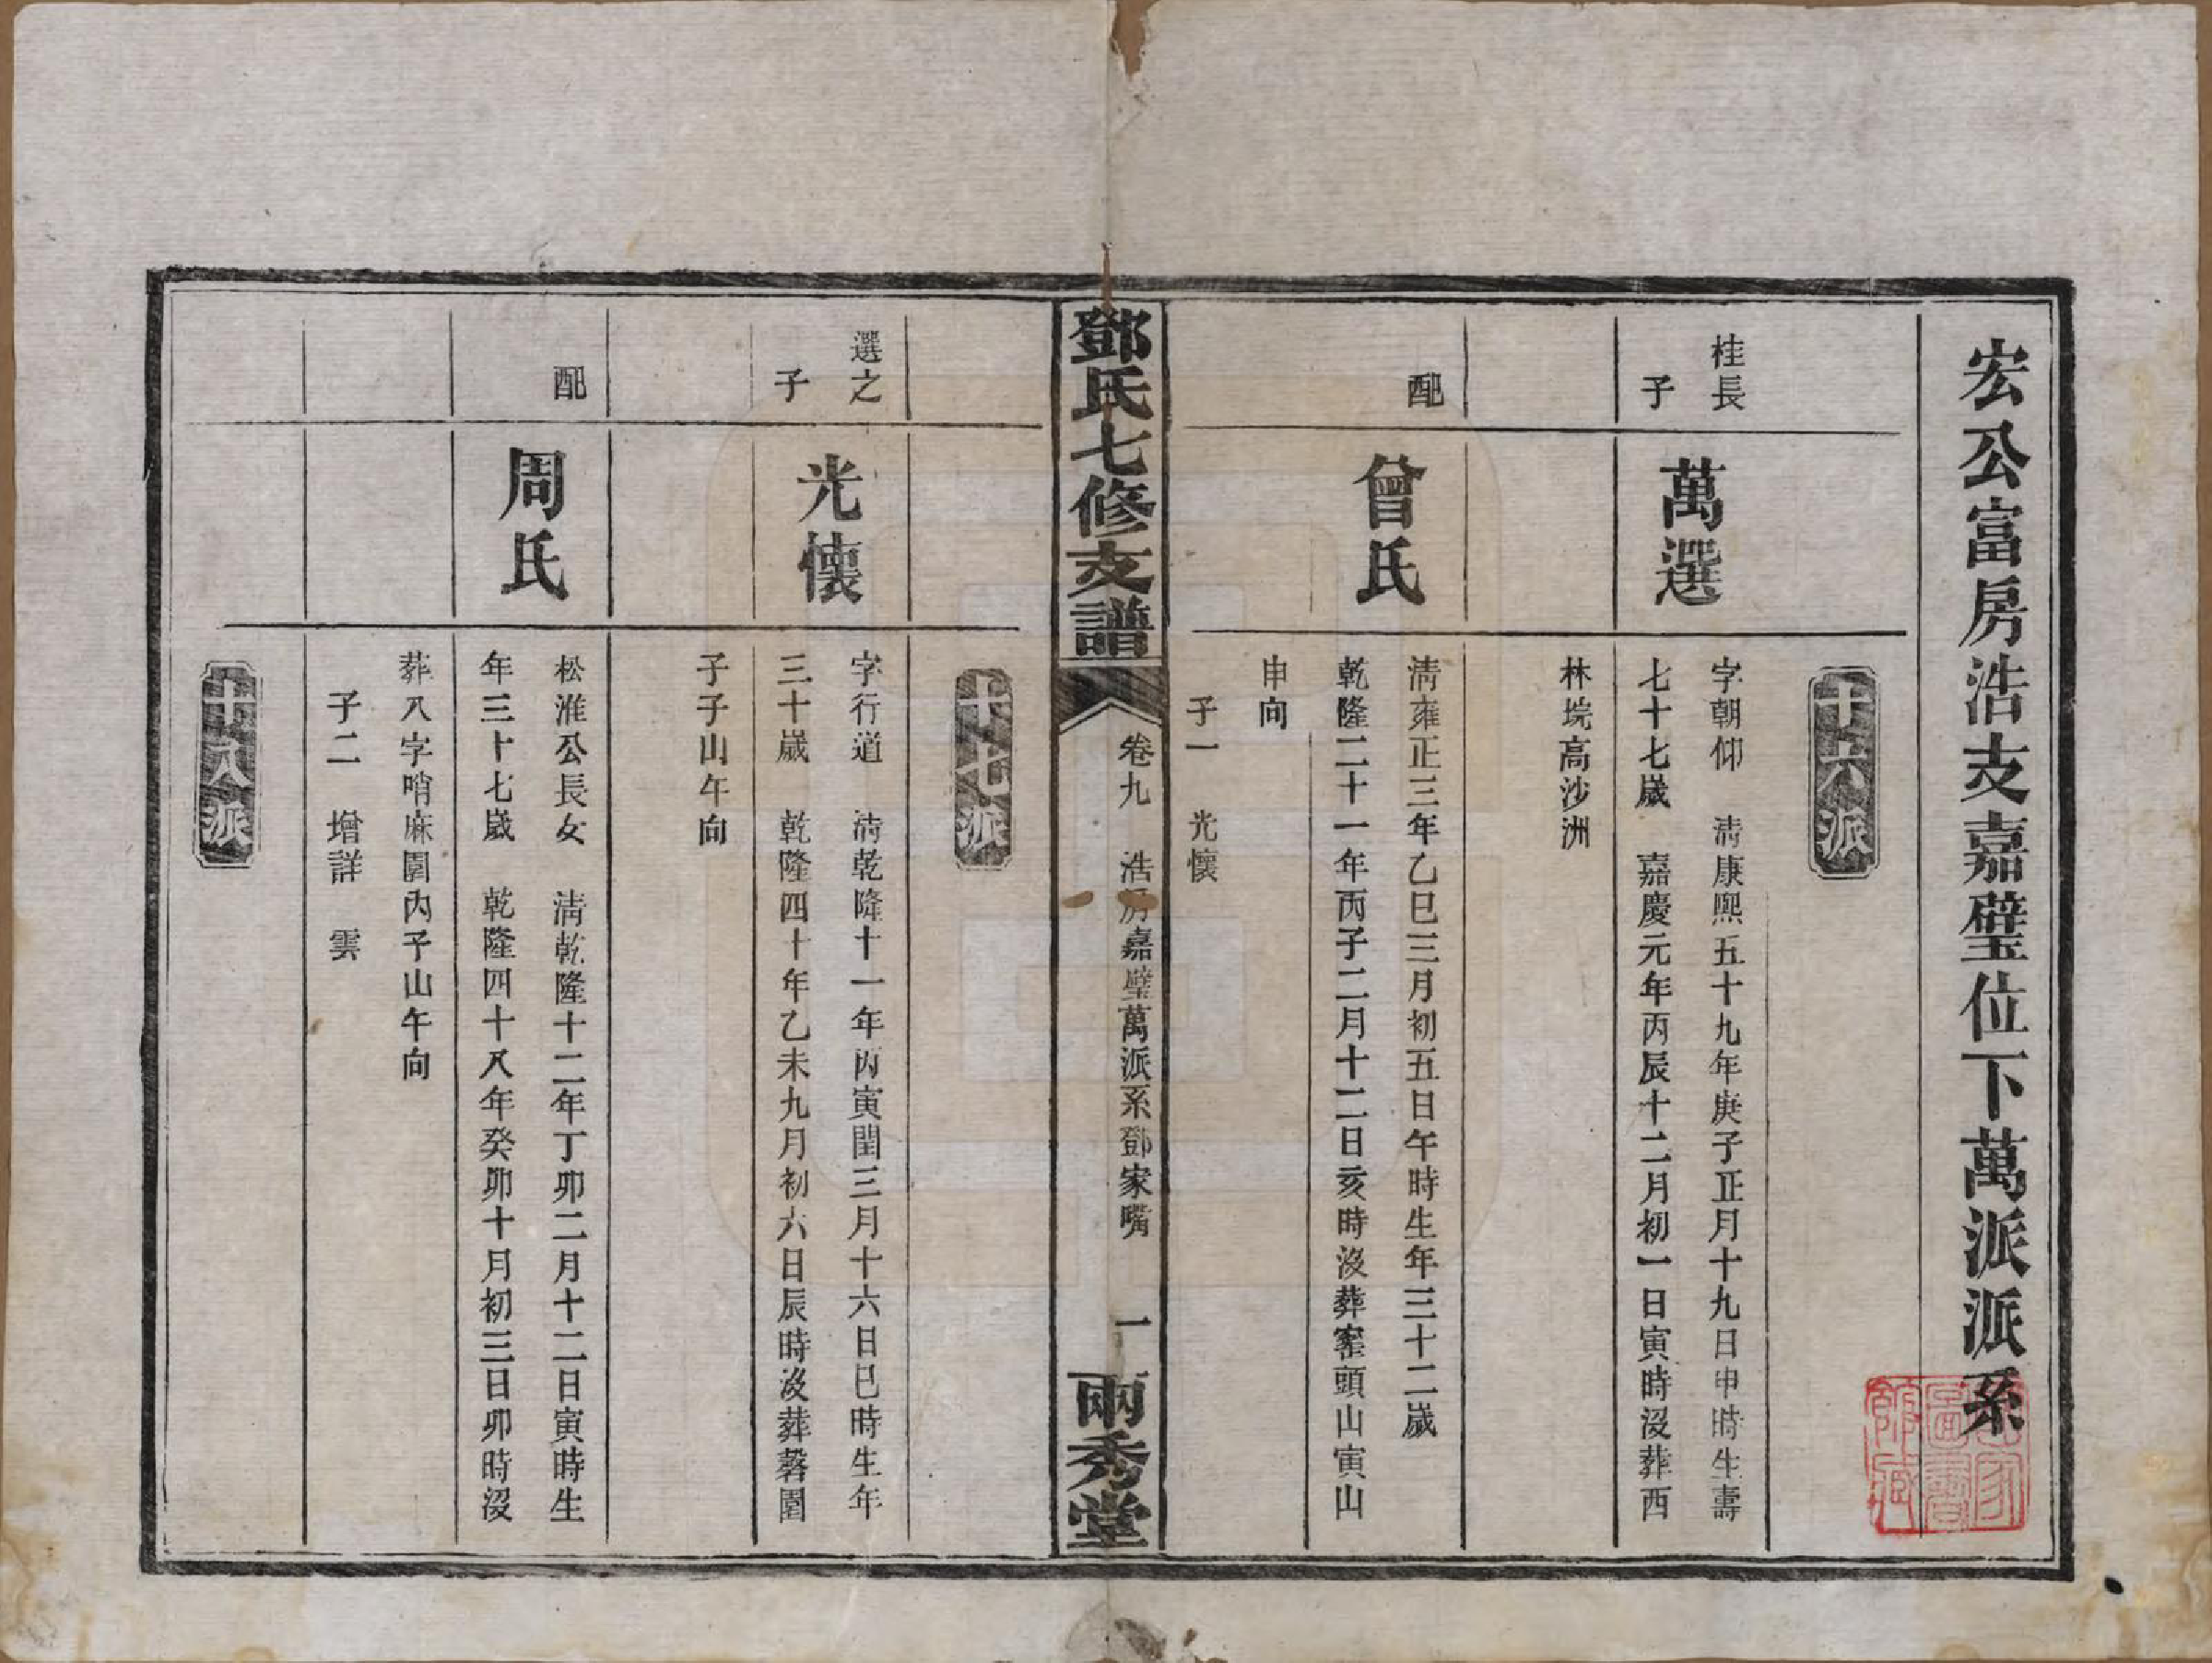 宏公富房浩支嘉璧位下萬派派系
十六派
桂長
子
萬選
字朝仰　清康熙五十九年庚子正月十九日申時生壽
七十七歲　嘉慶元年丙辰十二月初一日寅時沒葬西
林垸高沙洲
配
曾氏
清雍正三年乙巳三月初五日午時生年三十二歲
乾隆二十一年丙子二月十二日亥時沒葬窰頭山寅山
申向
子一　光懷
鄧氏七修支譜
卷九　浩房嘉璧萬派系鄧家嘴　一
兩秀堂
十七派
選之
子
光懷
字行道　清乾隆十一年丙寅閏三月十六日巳時生年
三十歲　乾隆四十年乙未九月初六日辰時沒葬磬園
子子山午向
配
周氏
松淮公長女　清乾隆十二年丁卯二月十二日寅時生
年三十七歲　乾隆四十八年癸卯十月初三日卯時沒
葬八字哨麻園內子山午向
子二　增詳　雲
十八派